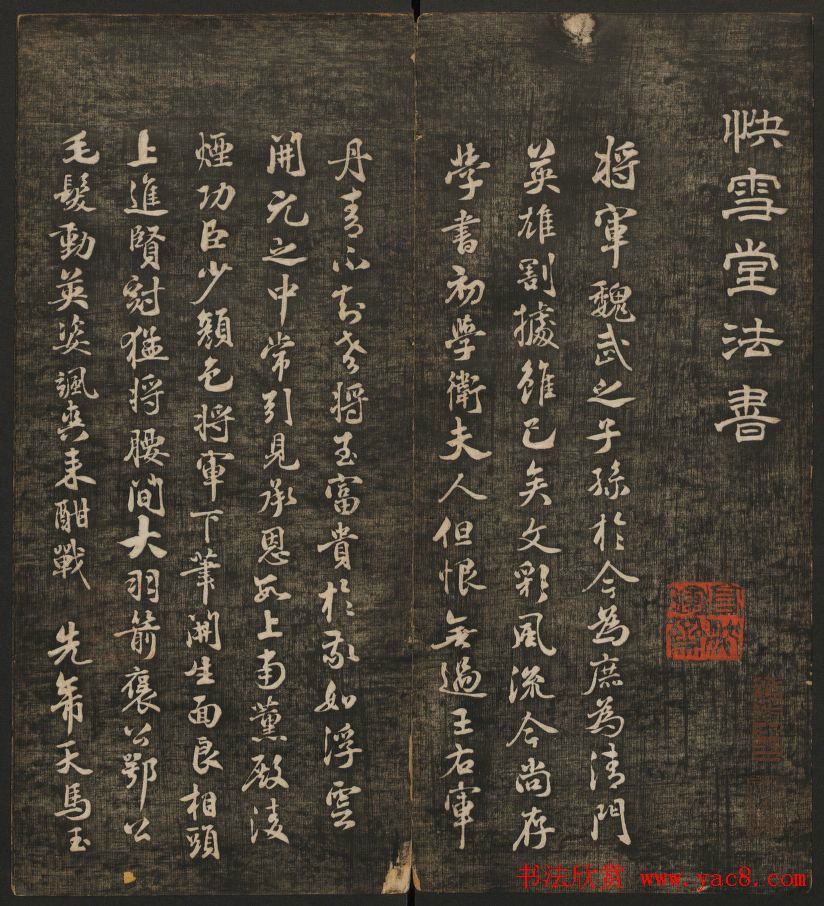 快雪堂法書
将軍魏武之子孫於今為庶為清門
英雄割據雖已矣文彩風流今尚存
學書初學衛夫人但恨無過王右軍
丹青不知老将至富貴於我如浮雲
開元之中常引見承恩數上南薰殿淩
煙功臣少顏色将軍下筆開生面良相頭
上進賢冠猛将腰間大羽箭褒公鄂公
毛髮動英姿颯爽来酣戰 先帝天馬玉
书法欣赏 www.yac8.com